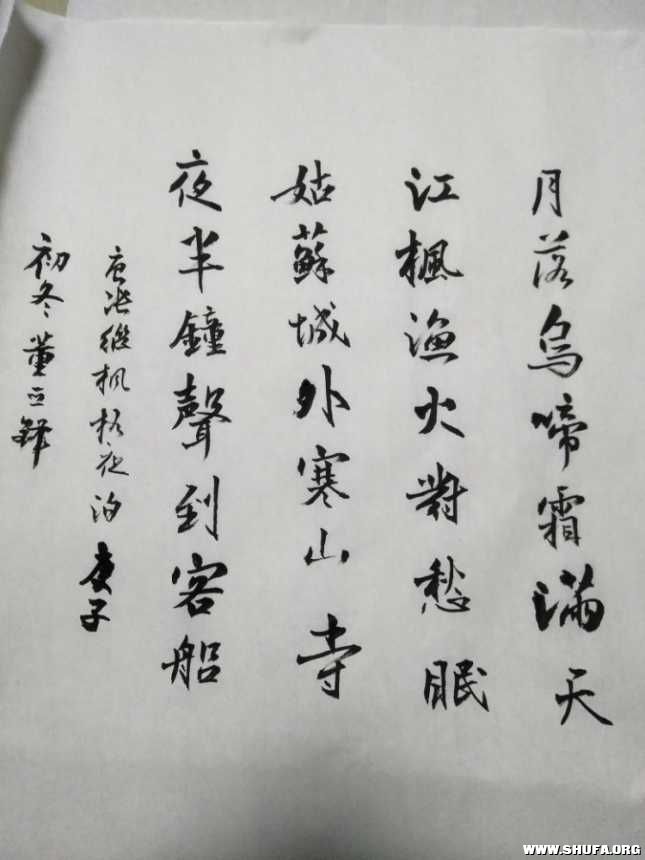 月落烏啼霜滿天
江楓渔火對愁眠
姑蘇城外寒山寺
夜半鐘聲到客船
唐张继枫桥夜泊 庚子
初冬 董
WWW.SHUFA.ORG